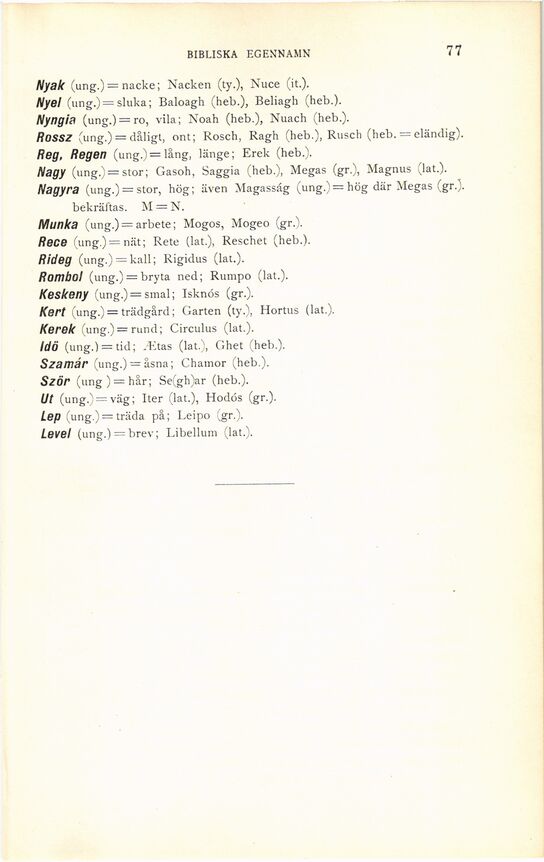 BIBLISKA EGENNAMN 77
Nyak (ung.) = nacke; Nacken (ty.), Nuce (it.).
Nyel (ung.) = sluka; Baloagh (heb.), Beliagh (heb.).
Nyngia (ung.) = ro, vila; Noah (heb.), Nuach (heb.).
Rossz (ung.) = dåligt, ont; Rosch, Ragh (heb.), Rusch (heb. = eländig).
Reg, Regen (ung.) = lång, länge; Erek (heb.).
Nagy (ung.) = stor; Gasoh, Saggia (heb.), Megas (gr.), Magnus (lat.).
Nagyra (ung.) = stor, hög; även Magasság (ung.) = hög där Megas (gr.).
bekräftas. M = N.
Munka (ung.) = arbete; Mogos, Mogeo (gr.).
Rece (ung.) = nät; Rete (lat.), Reschet (heb.).
Rideg (ung.) = kall; Rigidus (lat.).
Rombol (ung.) = bryta ned; Rumpo (lat.).
Keskeny (ung.) = smal; Isknós (gr.).
Kert (ung.) = trädgård; Garten (ty.), Hortus (lat.).
Kerek (ung.) = rund; Circulus (lat.).
Idö (ung.) = tid; Ætas (lat.), Ghet (heb.).
Szamár (ung.) = åsna; Chamor (heb.).
Ször (ung ) = hår; Se(gh)ar (heb.).
Ut (ung.) = väg; Iter (lat.), Hodós (gr.).
Lep (ung.) = träda på; Leipo (gr.).
Level (ung.) = brev; Libellum (lat.).